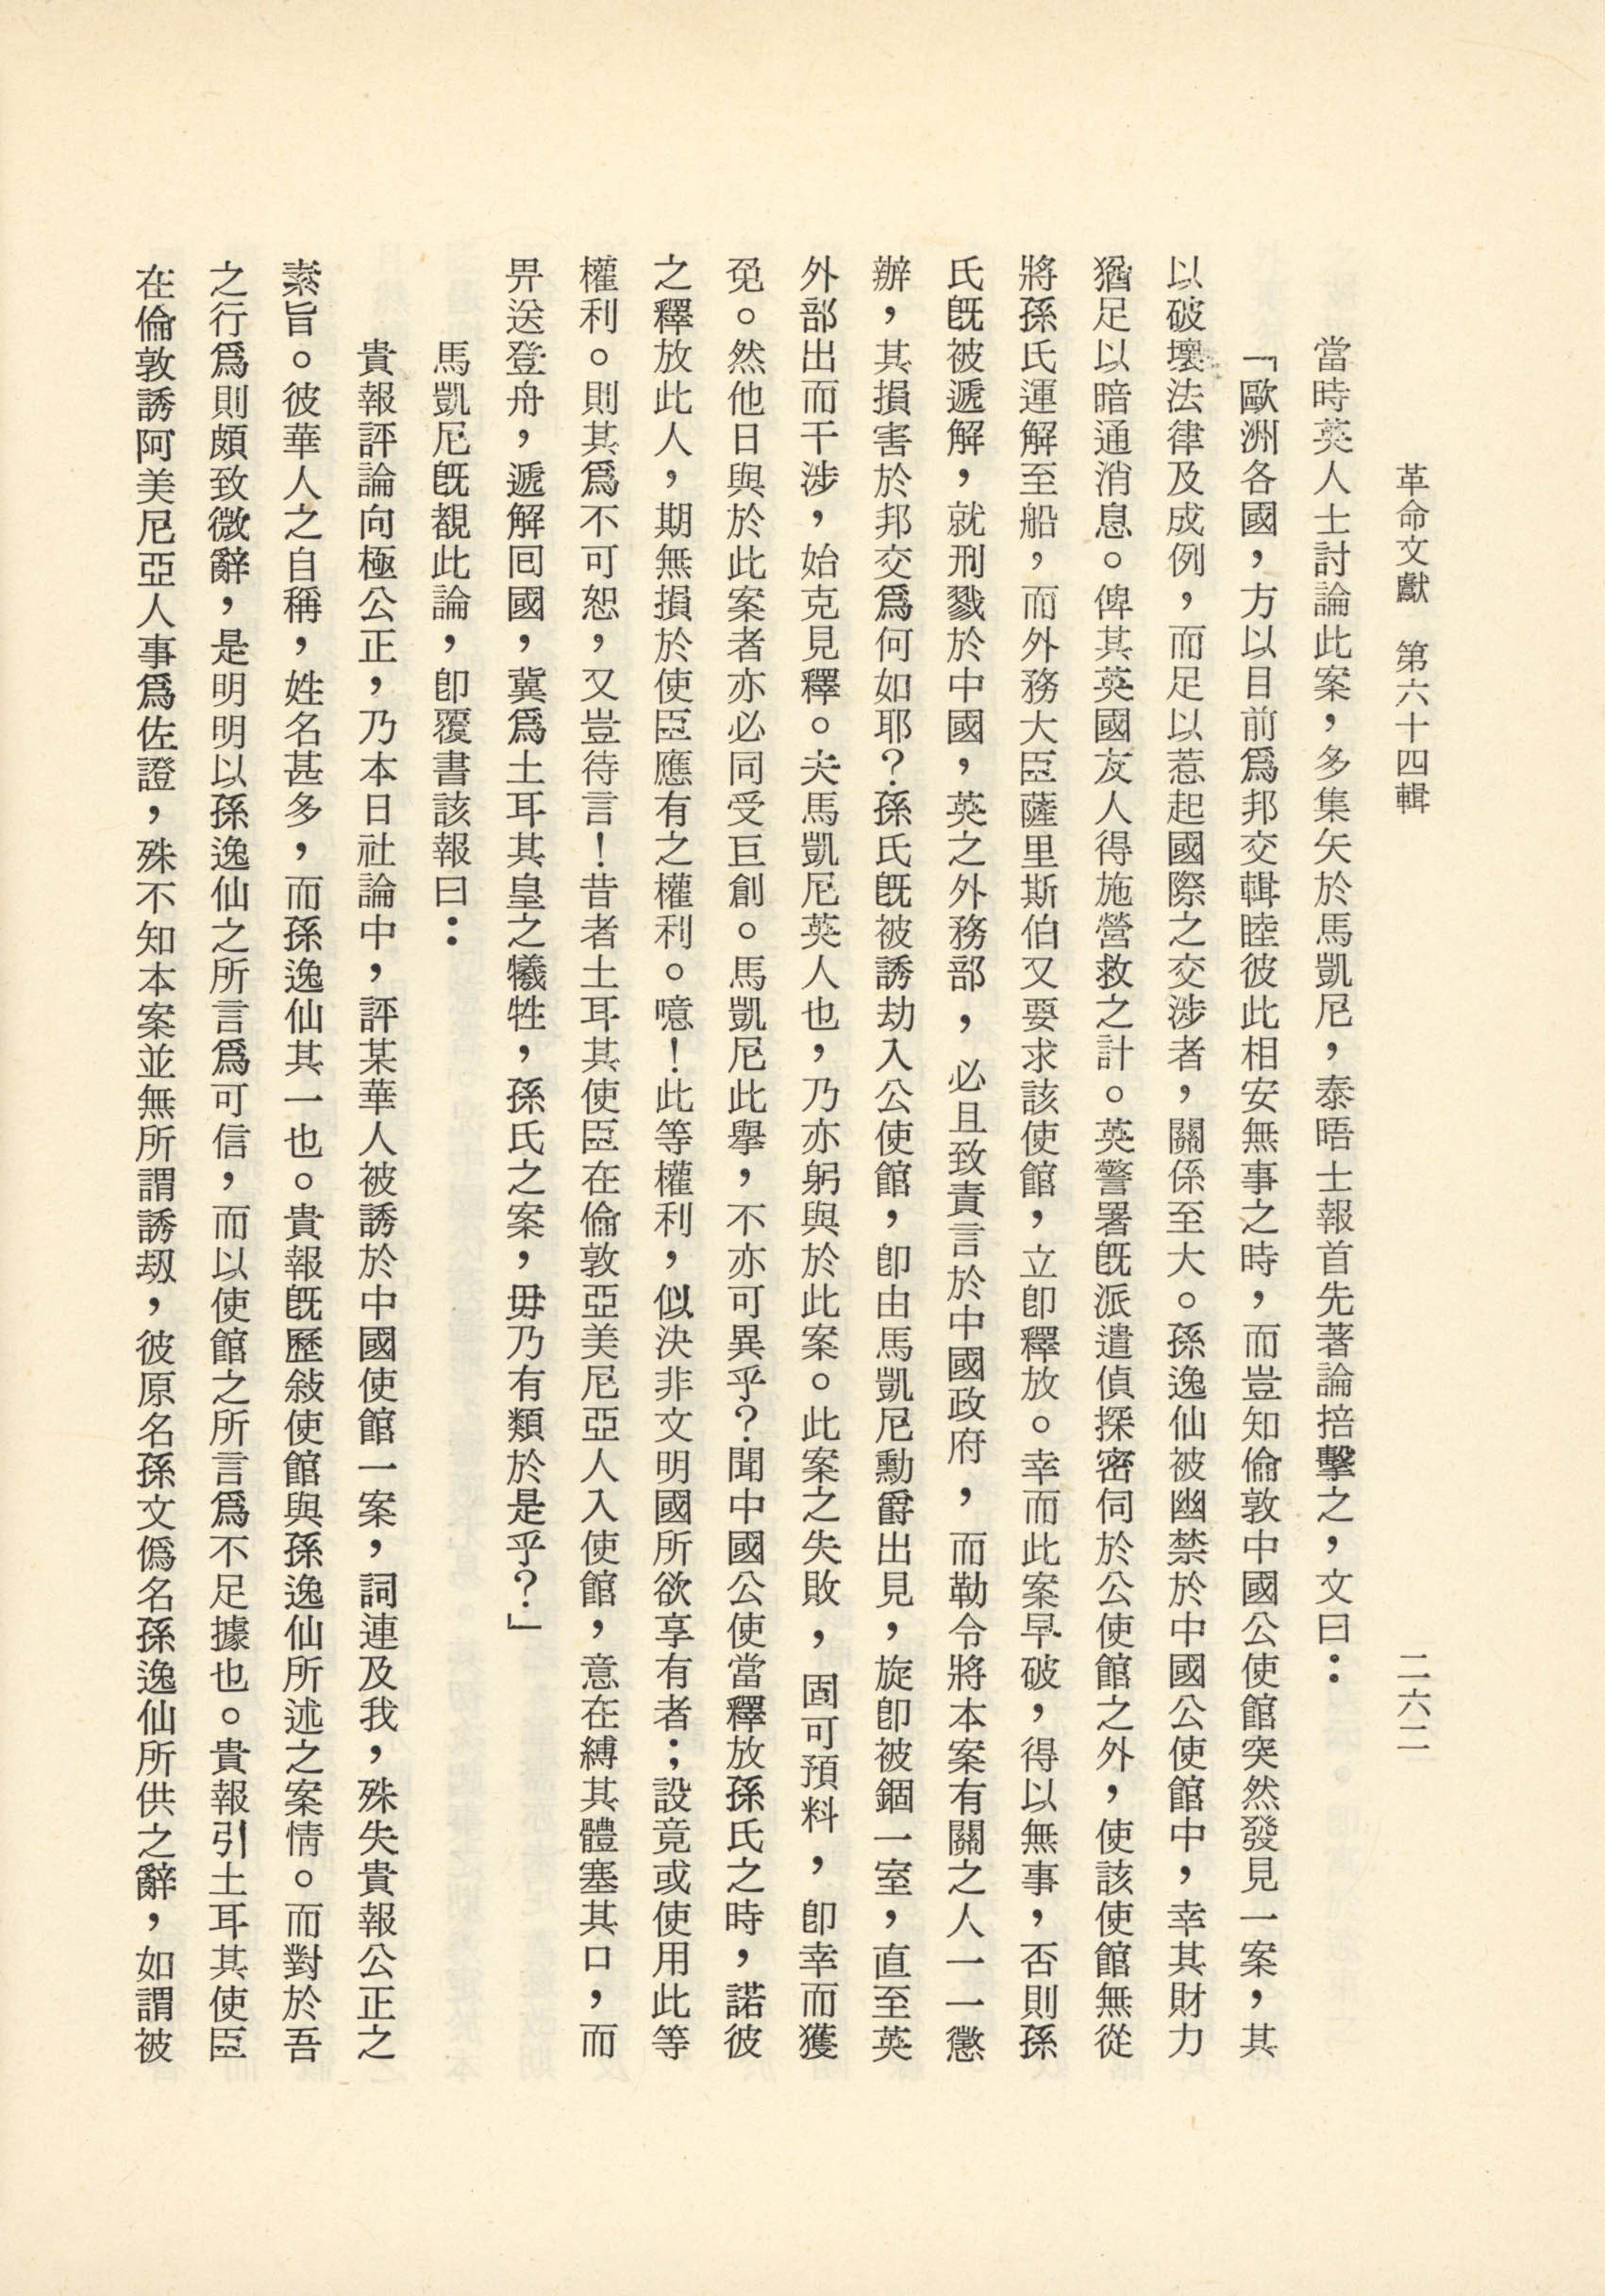 革命文獻　第六十四輯
二六二
當時英人士討論此案，多集矢於馬凱尼，泰晤士報首先著論掊擊之，文曰：
「歐洲各國，方以目前爲邦交輯睦彼此相安無事之時，而豈知倫敦中國公使館突然發見一案，其
以破壞法律及成例，而足以惹起國際之交涉者，關係至大。孫逸仙被幽禁於中國公使館中，幸其財力
猶足以暗通消息。俾其英國友人得施營救之計。英警署既派遣偵探密伺於公使館之外，使該使館無從
將孫氏運解至船，而外務大臣薩里斯伯又要求該使館，立卽釋放。幸而此案早破，得以無事，否則孫
氏既被遞解，就刑戮於中國，英之外務部，必且致責言於中國政府，而勒令將本案有關之人一一懲
辦，其損害於邦交爲何如耶？孫氏既被誘劫入公使館，卽由馬凱尼勳爵出見，旋卽被錮一室，直至英
外部出而干涉，始克見釋。夫馬凱尼英人也，乃亦躬與於此案。此案之失敗，固可預料，卽幸而獲
免。然他日與於此案者亦必同受巨創。馬凱尼此舉，不亦可異乎？聞中國公使當釋放孫氏之時，諾彼
之釋放此人，期無損於使臣應有之權利。噫！此等權利，似決非文明國所欲享有者；設竟或使用此等
權利。則其爲不可恕，又豈待言！昔者土耳其使臣在倫敦亞美尼亞人入使館，意在縛其體塞其口，而
畀送登舟，遞解回國，冀爲土耳其皇之犧牲，孫氏之案，毋乃有類於是乎？」
馬凱尼既覩此論，卽覆書該報曰：
貴報評論向極公正，乃本日社論中，評某華人被誘於中國使館一案，詞連及我，殊失貴報公正之
素旨。彼華人之自稱，姓名甚多，而孫逸仙其一也。貴報既歷敍使館與孫逸仙所述之案情。而對於吾
之行爲則頗致微辭，是明明以孫逸仙之所言爲可信，而以使館之所言爲不足據也。貴報引土耳其使臣
在倫敦誘阿美尼亞人事爲佐證，殊不知本案並無所謂誘刼，彼原名孫文僞名孫逸仙所供之辭，如謂被